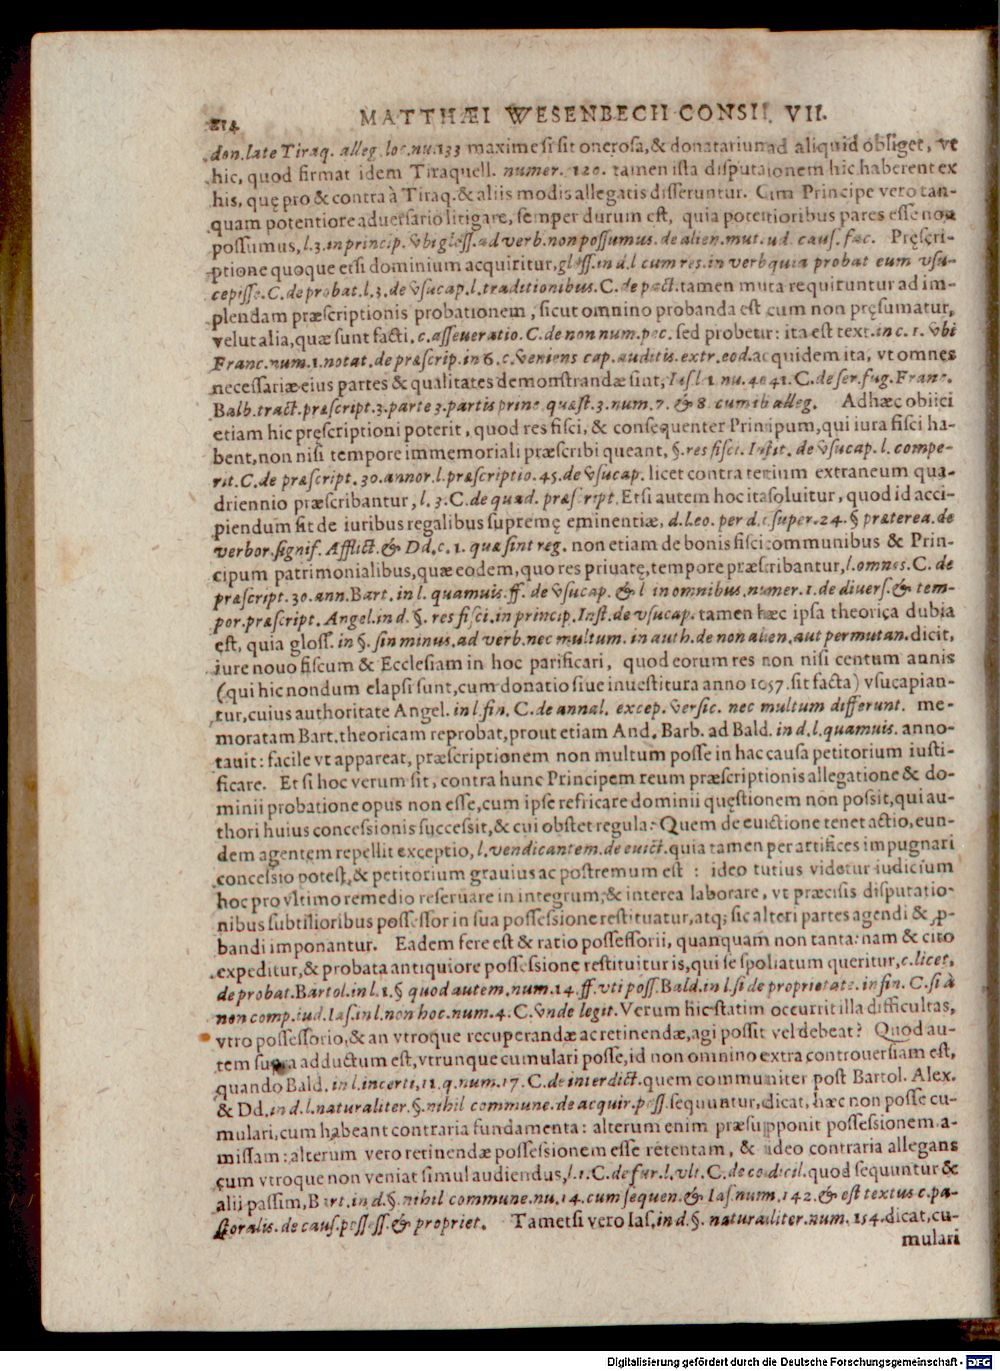 214 MATTHÆI WESENBECII CONSIL. VII.
don. late Tiraq. alleg. loc. nu. 133 maxime si sit onerosa, & donatarium ad aliquid obliget, vt
hic, quod firmat idem Tiraquell. numer. 120. tamen ista disputationem hic haberent ex
his, quę pro & contra à Tiraq. & aliis modis allegatis disseruntur. Cum Principe vero tan-
quam potentiore aduersario litigare, semper durum est, quia potentioribus pares esse non
possumus, l. 3. in princip. vbi gloss. ad verb. non possumus. de alien. mut. iud. caus. fac. Pręscri-
ptione quoque etsi dominium acquiritur, gloss. in d. l cum res. in verb quia probat eum vsu-
cepisse. C. de probat. l. 3. de vsucap. l. traditionibus. C. de pact. tamen multa requiruntur ad im-
plendam præscriptionis probationem, sicut omnino probanda est cum non pręsumatur,
velut alia, quæ sunt facti, c. asseueratio. C. de non num. pec. sed probetur: ita est text. in c. 1. vbi
Franc. num. 1. notat. de præscrip. in 6. c. veniens cap. auditis. extr. eod. ac quidem ita, vt omnes
necessariæ eius partes & qualitates demonstrandæ sint, Ias l 1 nu. 40 41. C. de ser. fug. Franc.
Balb. tract. præscript. 3. parte 3. partis princ quæst. 3. num. 7. & 8 cum ib alleg. Ad hæc obiici
etiam hic pręscriptioni poterit, quod res fisci, & consequenter Principum, qui iura fisci ha-
bent, non nisi tempore immemoriali præscribi queant, §. res fisci. Instit. de vsucap. l. compe-
rit. C. de præscript. 30. annor. l. præscriptio. 45. de vsucap. licet contra tertium extraneum qua-
driennio præscribantur, l. 3. C. de quad. præscript. Etsi autem hoc ita soluitur, quod id acci-
piendum sit de iuribus regalibus supremę eminentiæ, d. l. eo. per d. c. super. 24. § præterea. de
verbor. signif. Afflict. & Dd. c. 1. quæ sint reg. non etiam de bonis fisci communibus & Prin-
cipum patrimonialibus, quæ eodem, quo res priuatę, tempore præscribantur, l. omnes. C. de
præscript. 30. ann. Bart. in l. quamuis. ff. de vsucap. & l in omnibus. numer. 1. de diuers. & tem-
por. præscript. Angel. in d. §. res fisci. in princip. Inst. de vsucap. tamen hæc ipsa theorica dubia
est, quia gloss. in §. sin minus. ad verb. nec multum. in auth. de non alien. aut permutan. dicit,
iure nouo fiscum & Ecclesiam in hoc parificari, quod eorum res non nisi centum annis
(qui hic nondum elapsi sunt, cum donatio siue inuestitura anno 1057. sit facta) vsucapian-
tur, cuius authoritate Angel. in l. fin. C. de annal. excep. versic. nec multum differunt. me-
moratam Bart. theoricam reprobat, prout etiam And. Barb. ad Bald. in d. l. quamuis. anno-
tauit: facile vt appareat, præscriptionem non multum posse in hac causa petitorium iusti-
ficare. Et si hoc verum sit, contra hunc Principem reum præscriptionis allegatione & do-
minii probatione opus non esse, cum ipse refricare dominii quęstionem non possit, qui au-
thori huius concessionis successit, & cui obstet regula: Quem de euictione tenet actio, eun-
dem agentem repellit exceptio, l. vendicantem. de euict. quia tamen per artifices impugnari
concessio potest, & petitorium grauius ac postremum est : ideo tutius videtur iudicium
hoc pro vltimo remedio reseruare in integrum, & interea laborare, vt præcisis disputatio-
nibus subtilioribus possessor in sua possessione restituatur, atq; sic alteri partes agendi & ꝓ-
bandi imponantur. Eadem fere est & ratio possessorii, quanquam non tanta: nam & cito
expeditur, & probata antiquiore possessione restituitur is, qui se spoliatum queritur, c. licet.
de probat. Bartol. in l. 1. § quod autem. num. 14. ff. vti poss. Bald. in l. si de proprietate. in fin. C. si à
non comp. iud. Ias. in l. non hoc. num. 4. C. vnde legit. Verum hic statim occurrit illa difficultas,
vtro possessorio, & an vtroque recuperandæ ac retinendæ, agi possit vel debeat? Quod au-
tem supra adductum est, vtrunque cumulari posse, id non omnino extra controuersiam est,
quando Bald. in l. incerti, 11. q. num. 17. C. de interdict. quem communiter post Bartol. Alex.
& Dd. in d. l. naturaliter. §. nihil commune. de acquir. poss. sequuntur, dicat, hæc non posse cu-
mulari, cum habeant contraria fundamenta: alterum enim præsupponit possessionem a-
missam: alterum vero retinendæ possessionem esse retentam, & ideo contraria allegans
cum vtroque non veniat simul audiendus, l. 1. C. de fur. l. vlt. C. de codicil. quod sequuntur &
alii passim, Bart. in d. §. nihil commune. nu. 14. cum sequen. & Ias. num. 142. & est textus c. pa-
storalis. de caus. possess. & propriet. Tametsi vero Ias. in d. §. naturaliter. num. 154. dicat, cu-
mulari
Digitalisierung gefördert durch die Deutsche Forschungsgemeinschaft - DFG